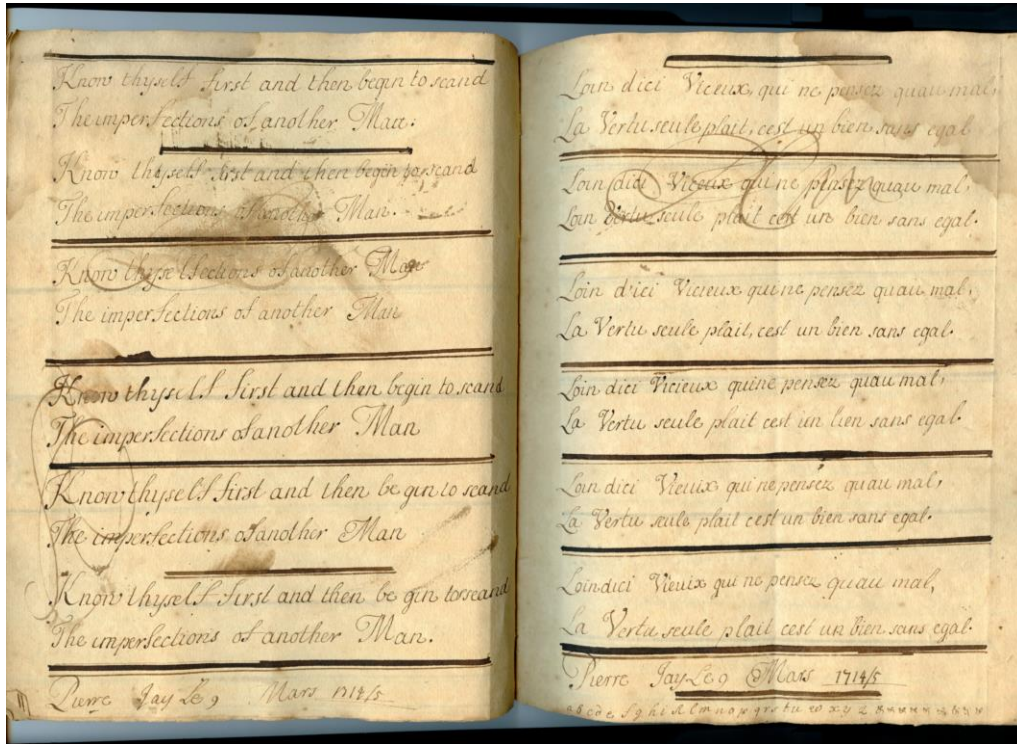 Know thyself first and then begin to scand
The imperfections of another Man.
Know thyself first and then begin to scand
The imperfections of another Man.
Know thyselfections of another Man
The imperfections of another Man
Know thyself first and then begin to scand
The imperfections of another Man
Know thyself first and then be gin to scand
The imperfections of another Man
Know thyself first and then be gin to scand
The imperfections of another Man.
Pierre Jay Le 9 Mars 1714/5
Loin dici Vicieux, qui ne pensez quau mal,
La Vertu seule plait, cest un bien sans egal
Loin dici Vicieux qui ne pensez quau mal,
Loin Vertu seule plait cest un bien sans egal.
Loin d'ici Vicieux qui ne pensez quau mal,
La Vertu seule plait, cest un bien sans egal.
Loin dici Vicieux qui ne pensez quau mal,
La Vertu seule plait cest un bien sans egal.
Loin dici Vieuix qui ne pensez quau mal,
La Vertu seule plait cest un bien sans egal.
Loin dici Vieuix qui ne pensez quau mal,
La Vertu seule plait cest un bien sans egal.
Pierre Jay Le 9 Mars 1714/5
a b c d e f g h i k l m n o p q r s t u w x y z